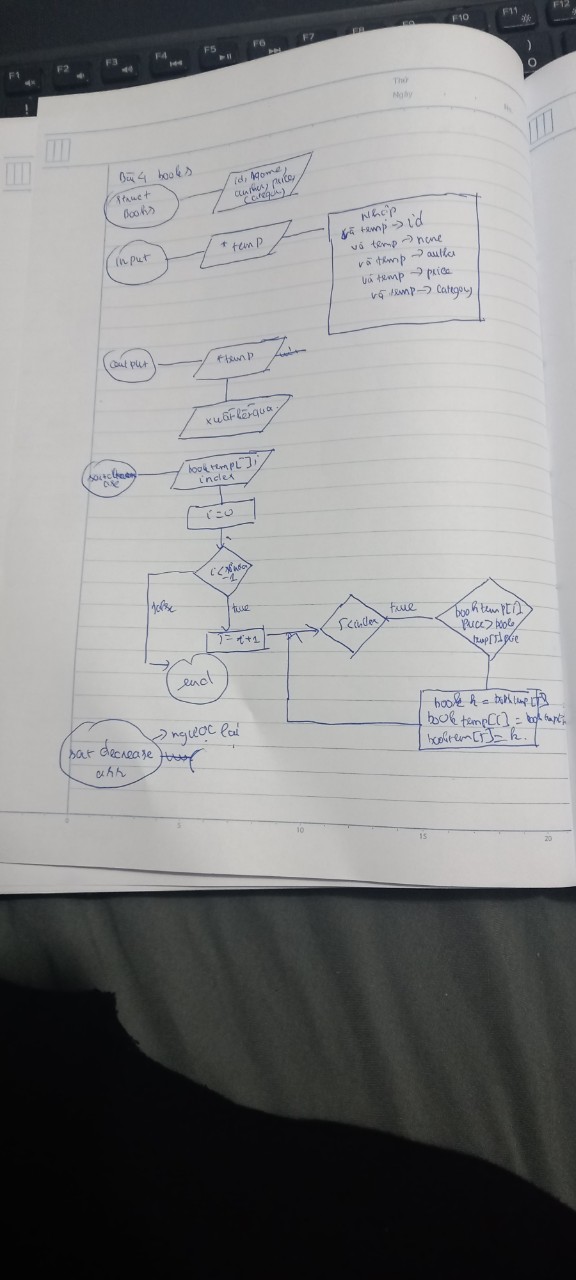 F1
F2
F3
F4
F5
F6
F7
F8
F10
F11
F12
)
0
Thứ
Ngày
No.
Bài 4 books
struct
Books
id, Name,
author, price,
category
input
* temp
Nhập
và temp → id
và temp → name
và temp → author
và temp → price
và temp → Category
output
*temp
xuất kết quả
book temp[],
index
i=0
i <
-1
false
true
J = i+1
J<index
true
book temp[i]
price > book
temp[J] price
end
book k = book temp[i]
book temp[i] = book temp[J]
book tem[J] = k.
sort decrease
arr
→ ngược lại
5
10
15
20